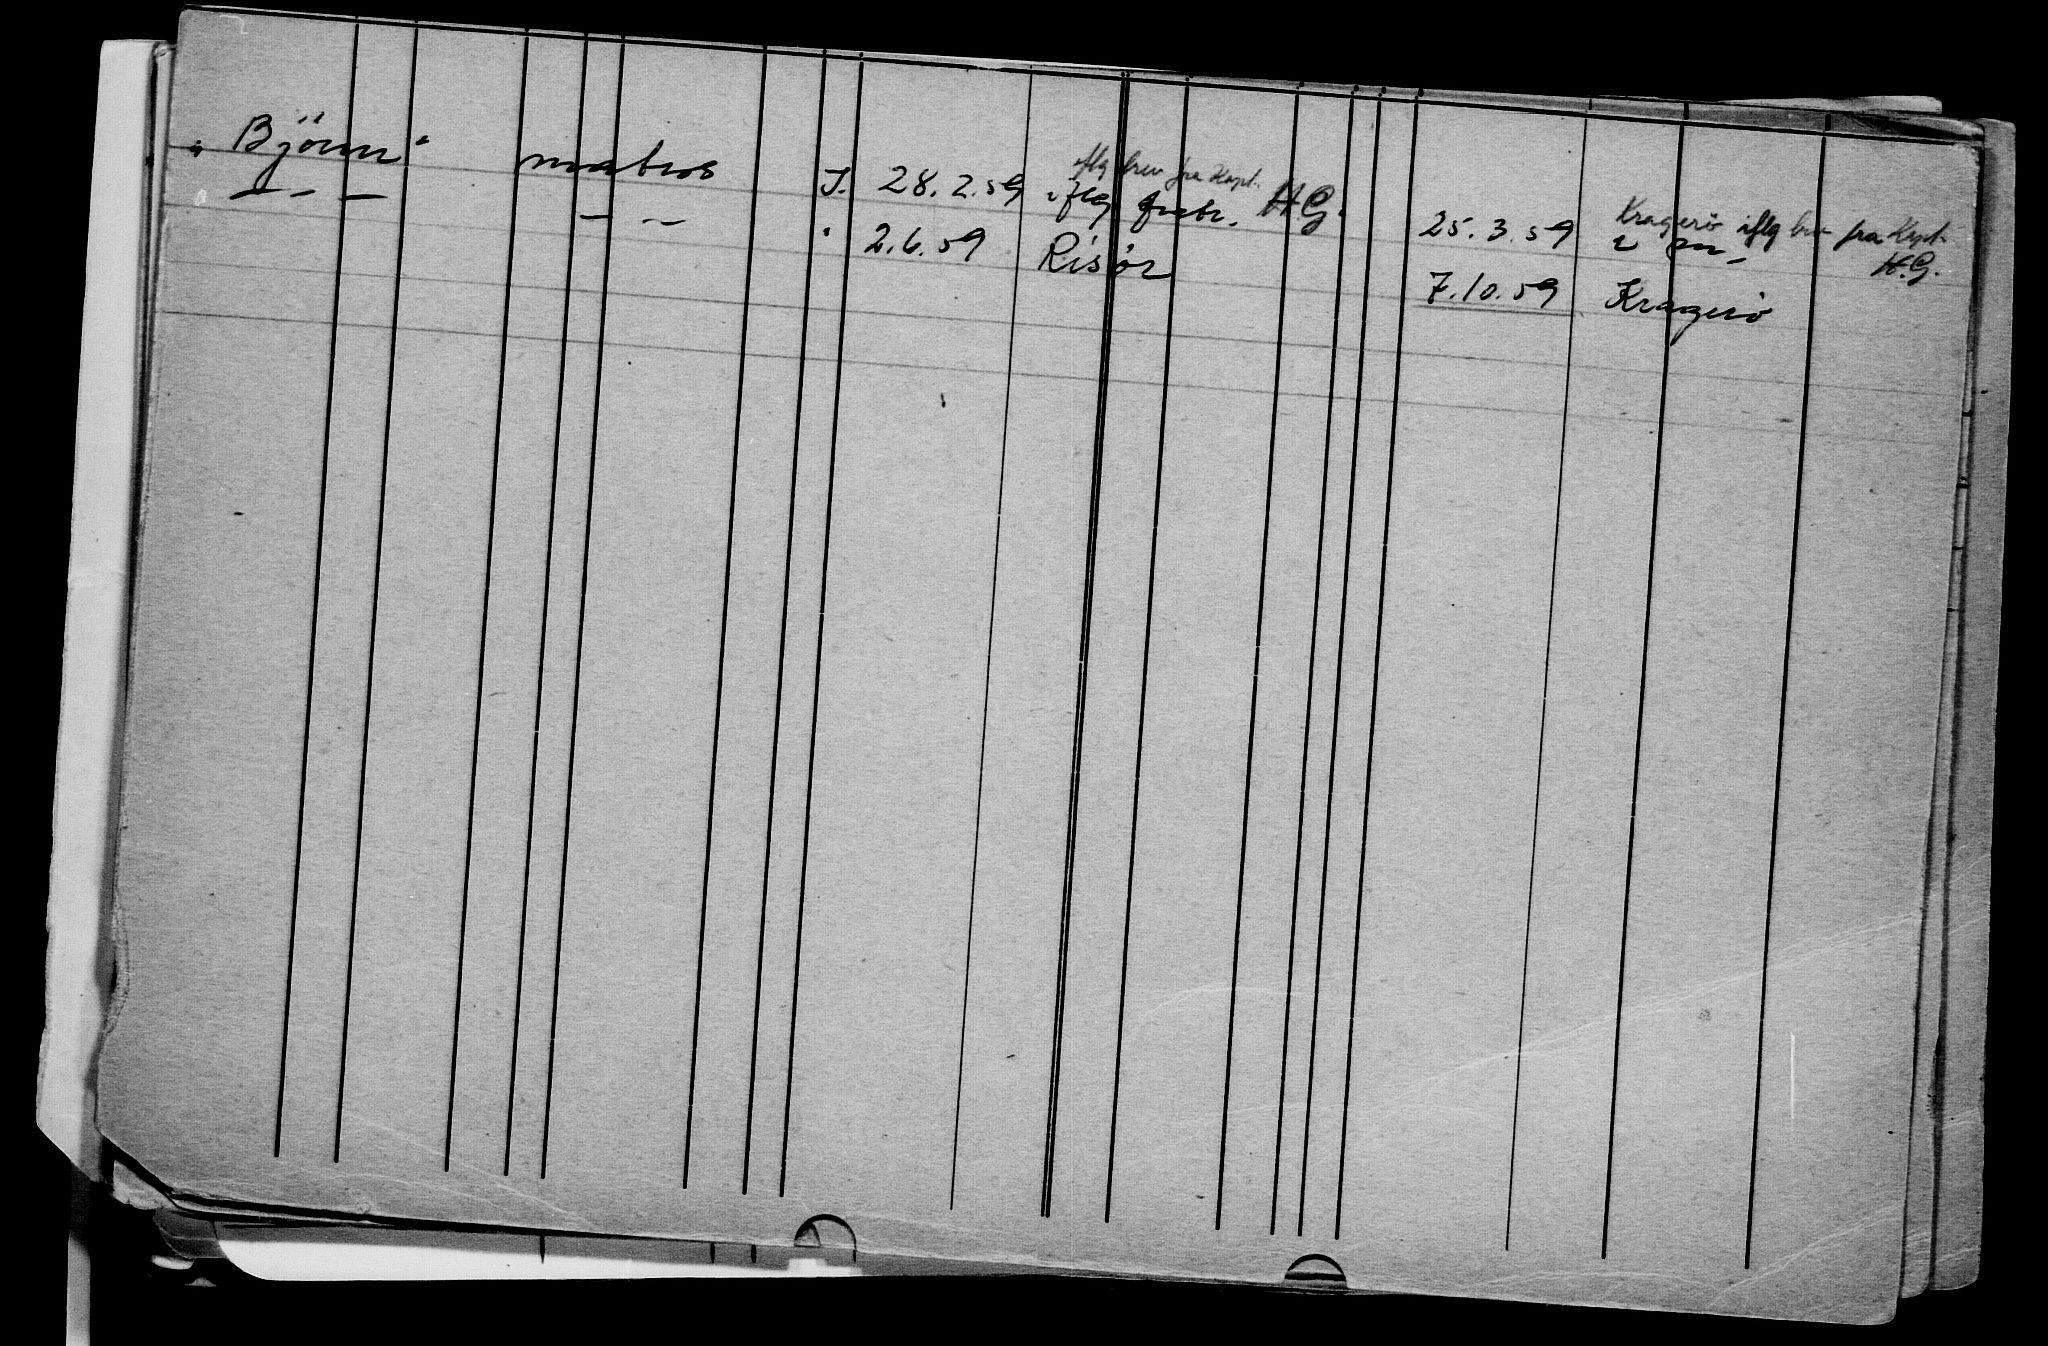 "Björnn" matros J. 28.2.59 iflg brev fra Kapt. H.G. 25.3.59 Kragerö iflg brev fra Kapt. H.G.
iflg
— - — - — " 2.6.59 Risör 7.10.59 Kragerö